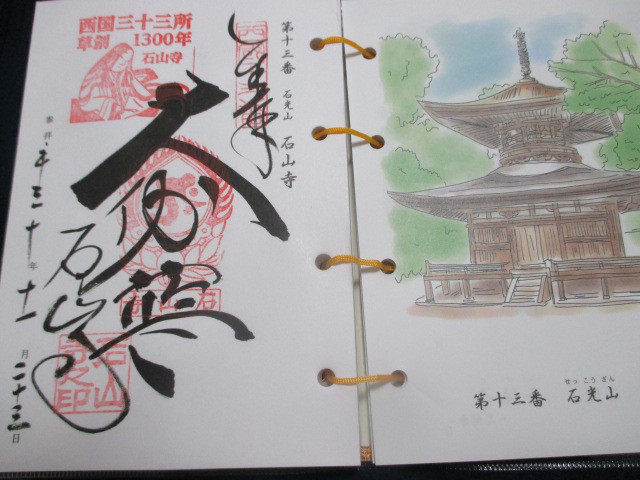 西国三十三所
草創 1300年
石山寺
第十三番 石光山 石山寺
奉拝
大伽藍
石山寺
平三十年十一月二十三日
石山
寺之印
せっこうざん
第十三番 石光山